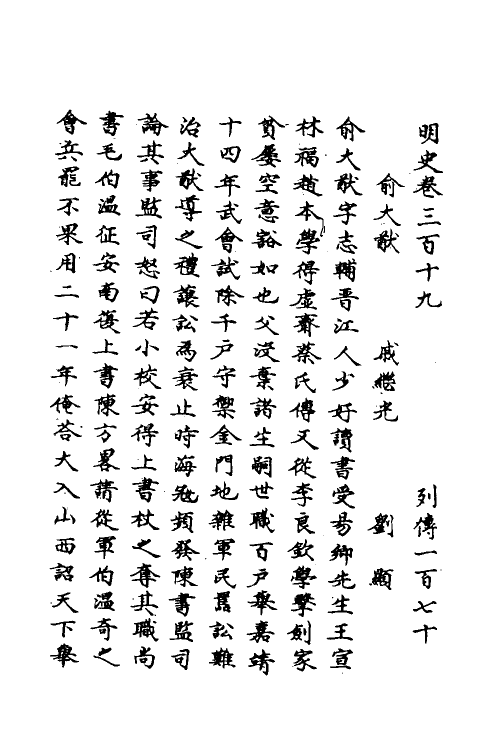 明史卷三百十九 列傳一百七十
俞大猷 戚繼光 劉顯
俞大猷字志輔晋江人少好讀書受易鄉先生王宣
林福趙本學得虛齋蔡氏傳又從李良欽學擊劍家
貧屢空意豁如也父沒棄諸生嗣世職百戶舉嘉靖
十四年武會試除千戶守禦金門地雜軍民嚚訟難
治大猷導之禮讓訟為衰止時海冦頻發陳書監司
論其事監司怒曰若小校安得上書杖之奪其職尚
書毛伯溫征安南復上書陳方畧請從軍伯溫奇之
會兵罷不果用二十一年俺荅大入山西詔天下舉